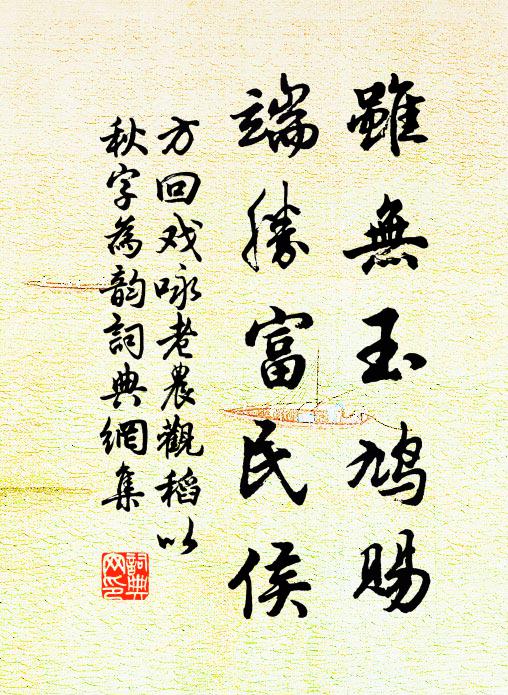 雖無玉鸠賜
端勝富民侯
方回戏咏老農觀稻以
秋字為韵詞典網集
詞典网印